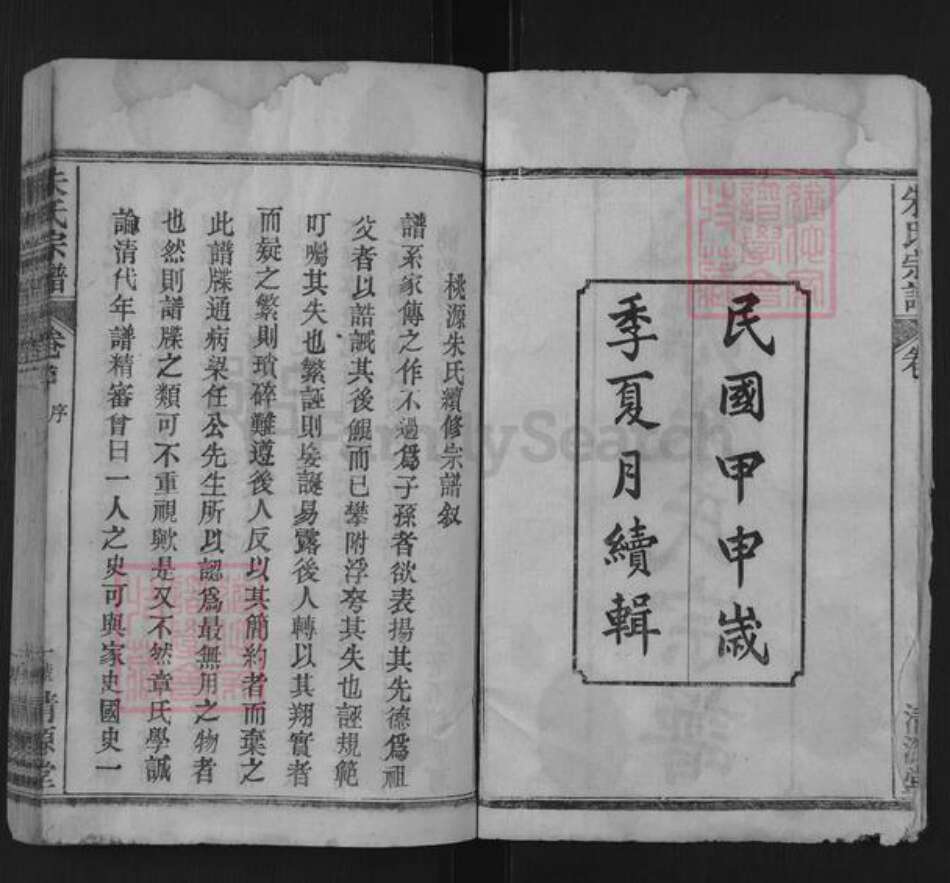 朱氏宗譜
卷
清源堂
民國甲申歲
季夏月續輯
桃源朱氏續修宗譜叙
譜系家傳之作不過爲子孫者欲表揚其先德爲祖
父者以誥誡其後餛而已攀附浮夸其失也誣規範
叮囑其失也繁誣則㛐誕易露後人轉以其翔實者
而疑之繁則瑣碎難遵後人反以其簡約者而棄之
此譜牒通病梁任公先生所以認爲最無用之物者
也然則譜牒之類可不重視歟是又不然章氏學誠
論清代年譜精審曾曰一人之史可與家史國史一
朱氏宗譜
卷首
序
一
清源堂
FamilySearch